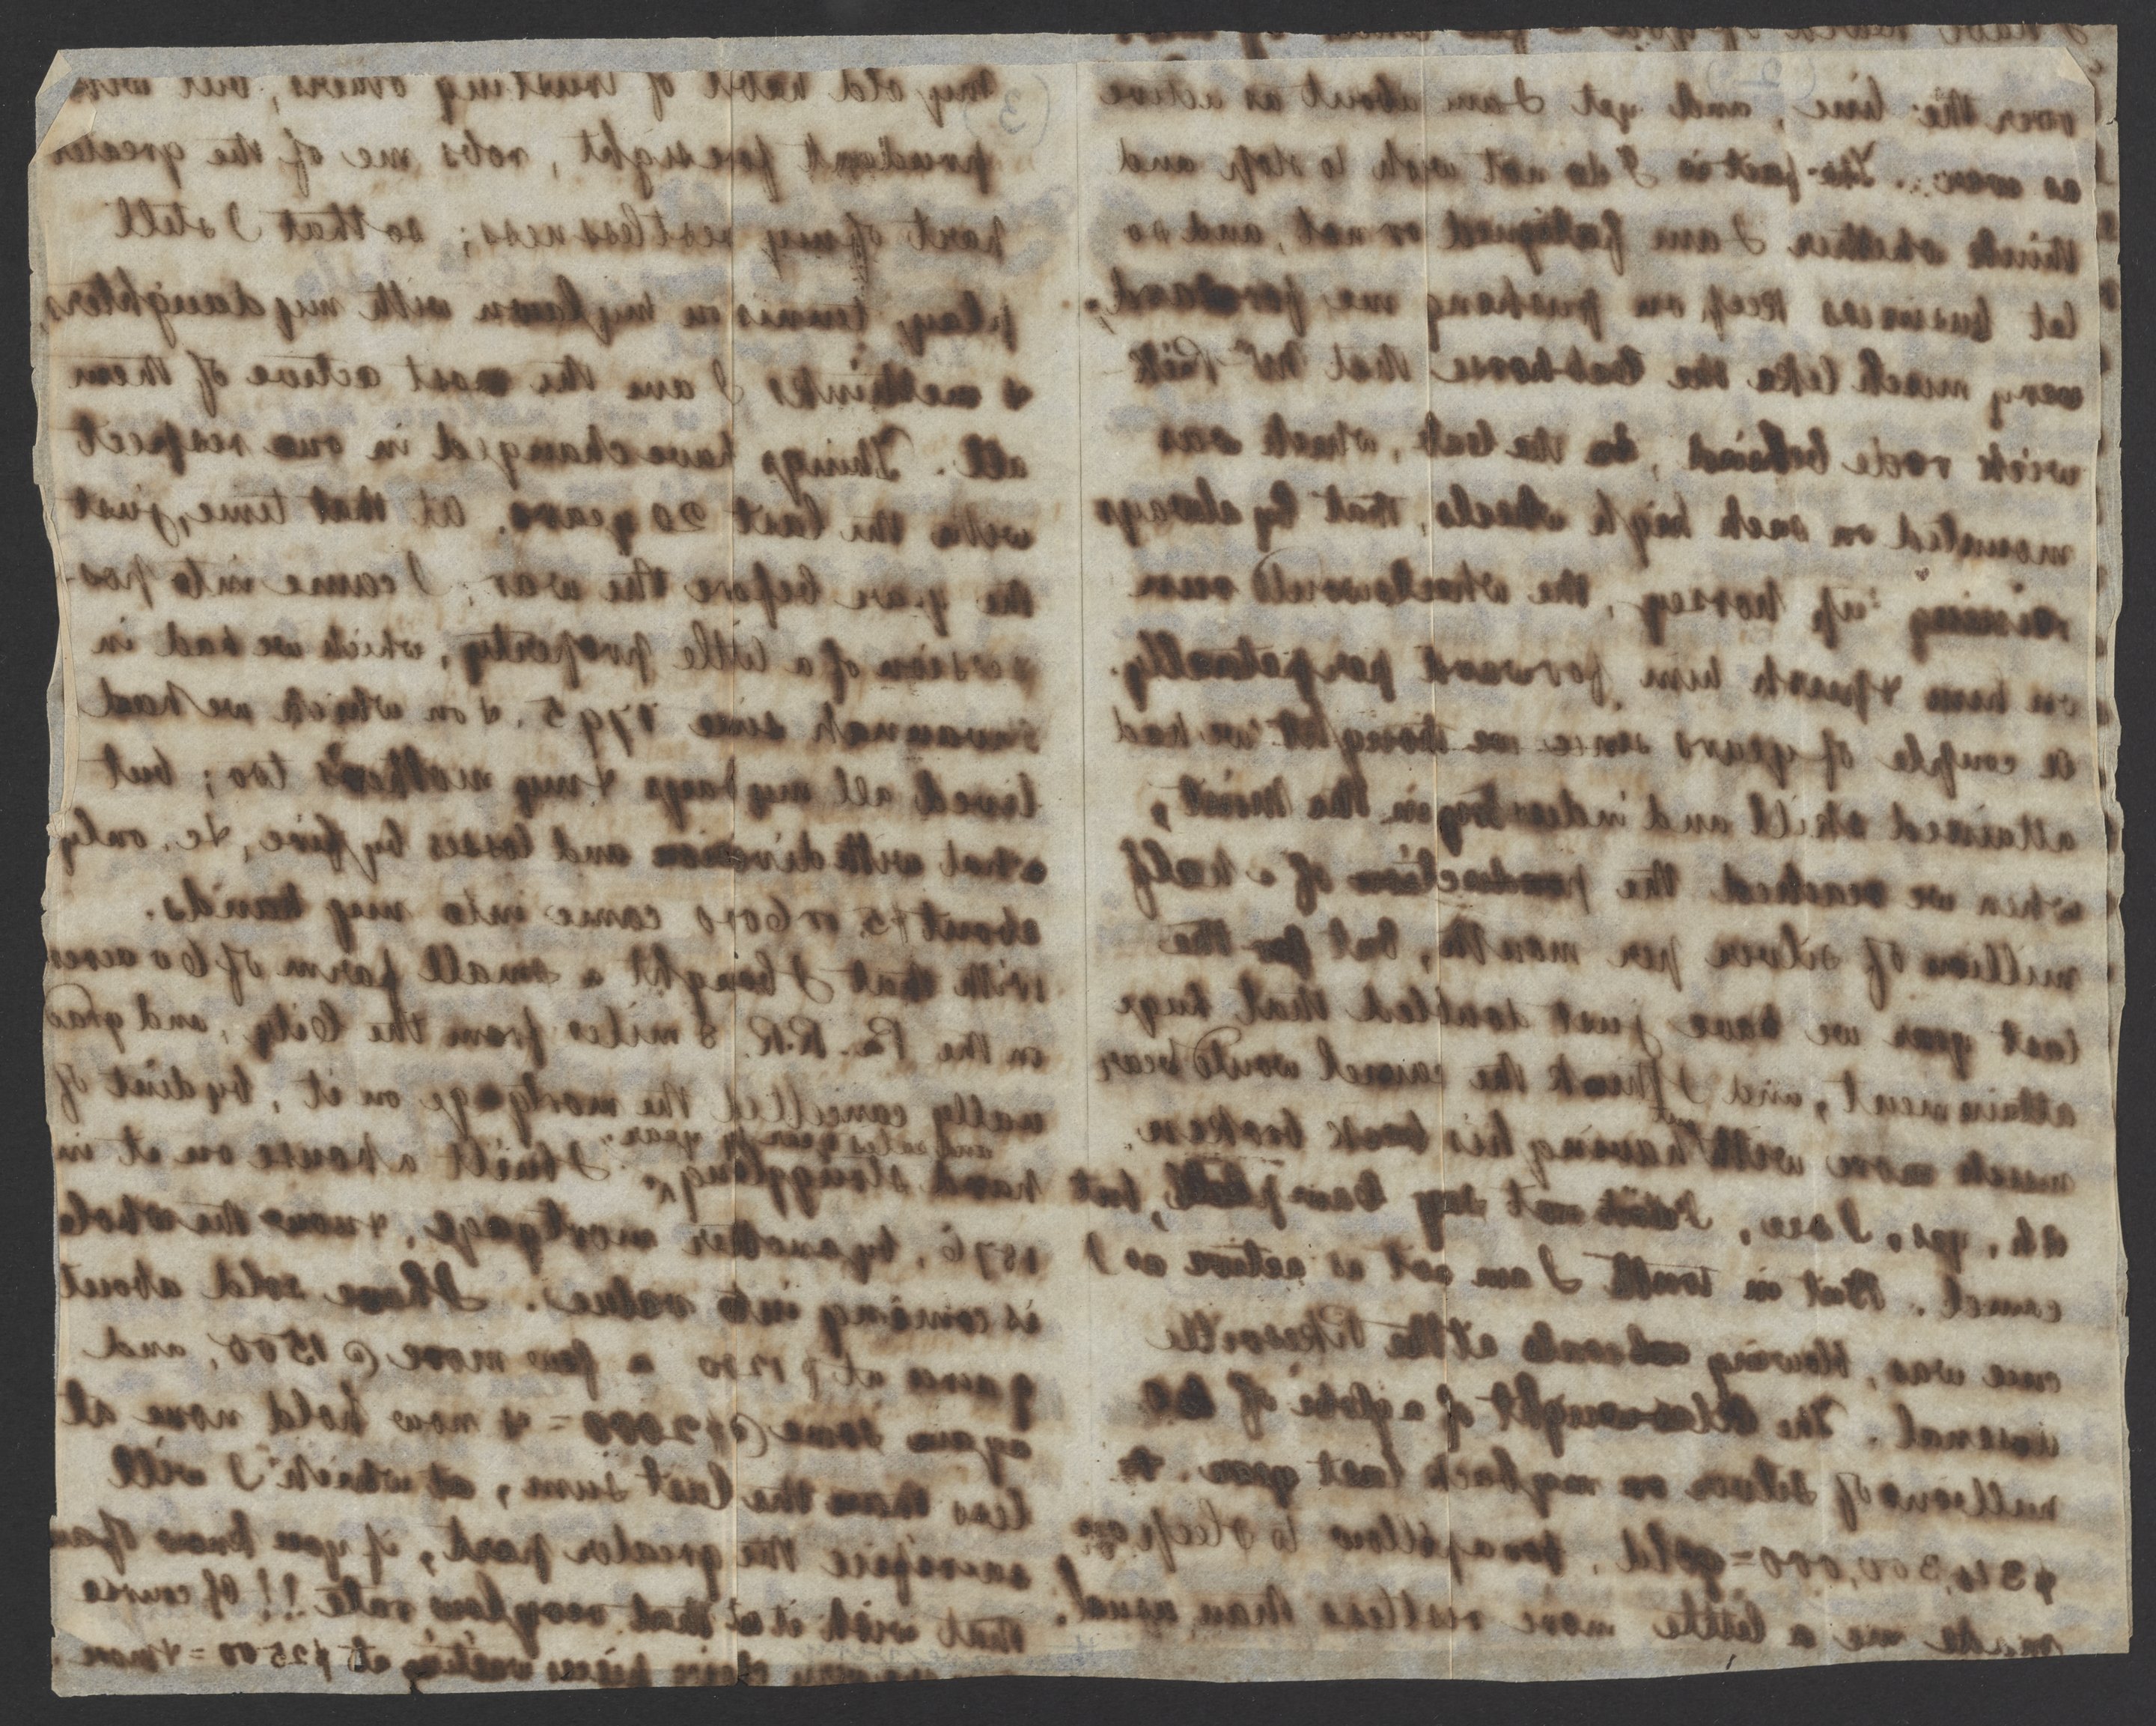 (2)
over the line, and yet I am about as active
as ever. The fact is I do not wish to stop and
think whether I am fatigued or not, and so
let business keep on pushing me forward,
very much like the horse that Mr
wick rode behind, in the , which was
mounted on such high wheels, that by always
up horsey, the wheels would run
on him & push him forward perpetually.
A couple of years since we thought we had
attained skill and industry in the mint,
when we reached the production of a half
million of silver per month, but for the
last year we have just doubled that huge
attainment, and I think the camel would bear
much more without having his back broken.
Ah, yes, I see, I am not
camel. But in truth I am not as active as I
once was, blowing at the Pikesville
arsenal. The weight of a of
millions of silver on my back last year &
$34,300,000 = gold, for a pillow to sleep on,
made me a little more restless than usual.
(3)
my old habit of trusting others, but with
prudent foresight, robs me of the greater
part of my restlessness; so that I still
play tennis on my lawn with my daughters,
& methinks I am the most active of them
all. Things have changed in one respect
with the last 20 years. At that time, just
the year before the war, I came into pos-
session of a little property, which we had in
Savannah since 1795, & on which we had
lived all my days & my mother's too; but
what with division and losses by fire, &c. only
about $5 or 6000 came into my hands.
With that I bought a small farm of 60 acres
on the Pa. R.R. 8 miles from the City, and grad
ually cancelled the mortgage on it, by dint of
hard struggling and sales year by year, I built a house on it in
1876, by another mortgage, & now the whole
is coming into value. I have sold about
9 acres at $1200 a few more @ 1500, and
again some @ $2000 = & now hold none at
less than the last sum, at which I will
sacrifice the greater part, if you know of any
that wish it at that very low rate!!! Of course
choice pieces waiting at $2500 = & more.